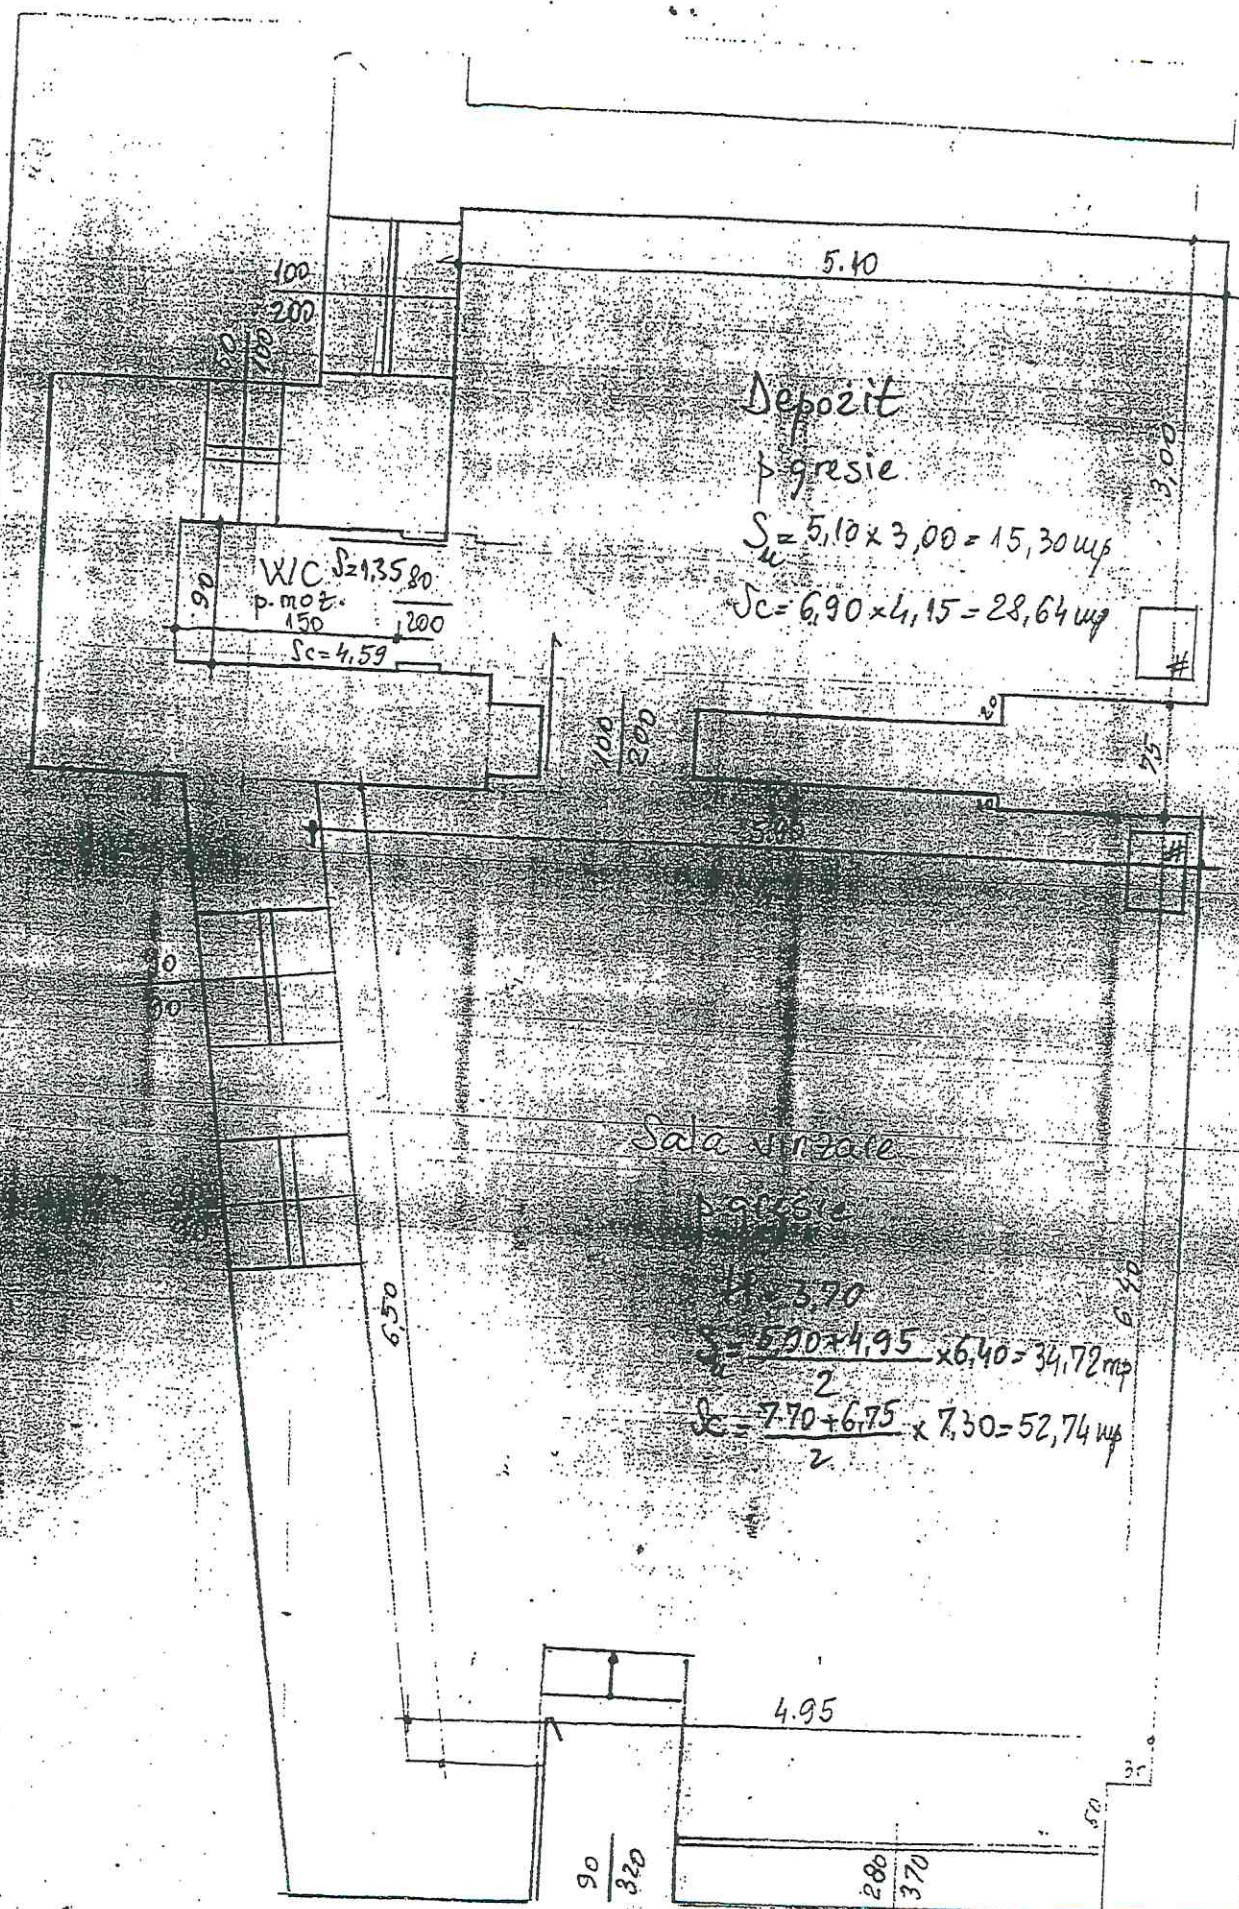 5.10
100
200
50
100
Depozit
p gresie
3,00
Su = 5,10 x 3,00 = 15,30 mp
Sc = 6,90 x 4,15 = 28,64 mp
WC S=1,35
p. moz.
90
150
80
200
Sc = 4.59
#
20
100
200
75
15
#
90
Sala vinzare
p gresie
H = 3,70
6,50
6,40
Su = 5,90+4,95 / 2 x 6,40 = 34,72 mp
Sc = 7.70+6,75 / 2 x 7,30 = 52,74 mp
4.95
35
50
90
320
280
370